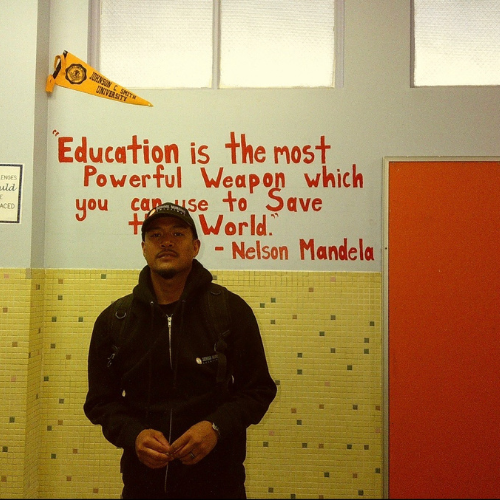 JOHNSON C. SMITH
UNIVERSITY
"Education is the most
Powerful Weapon which
you can use to Save
World."
- Nelson Mandela